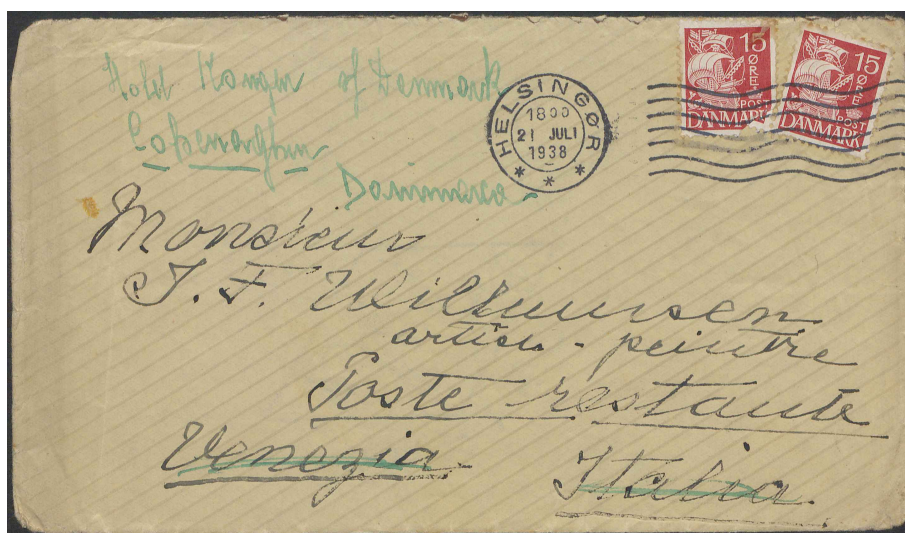 Hotel Kongen of Danmark
Copenaghen
Danimarca -
HELSINGØR
1800
21 JULI
1938
15
ØRE
POST
DANMARK
15
ØRE
POST
DANMARK
Monsieur
J. F. Willumsen
artiste - peintre
Poste restante
Venezia
Italia.